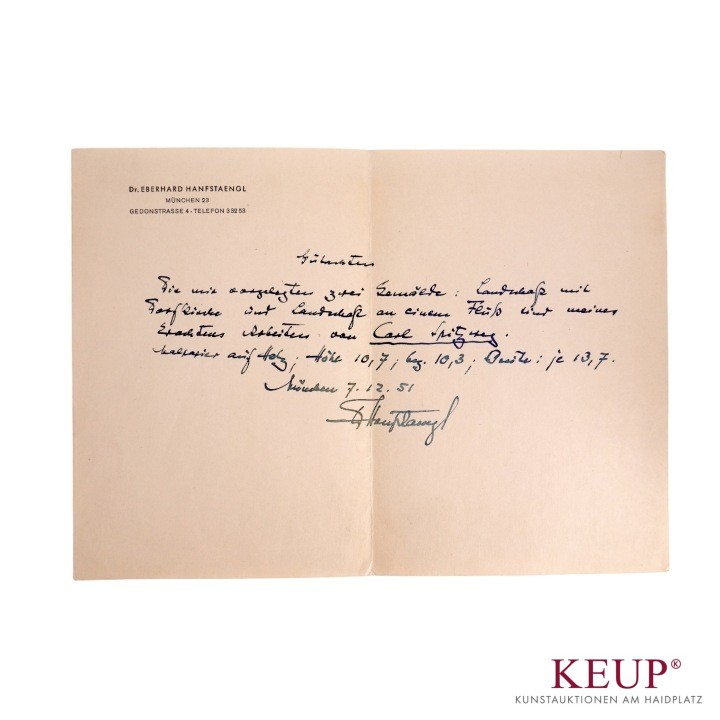 Dr. EBERHARD HANFSTAENGL
MÜNCHEN 23
GEDONSTRASSE 4 - TELEFON 33253
Gutachten
Die mir vorgelegten zwei Gemälde: Landschaft mit
Dorfkirche und Landschaft an einem Fluß sind meines
Erachtens Arbeiten von Carl Spitzweg.
Malpapier auf Holz; Höhe 10,7; bez. 10,3; Breite: je 13,7.
München 7.12.51
Hanfstaengl
KEUP®
KUNSTAUKTIONEN AM HAIDPLATZ